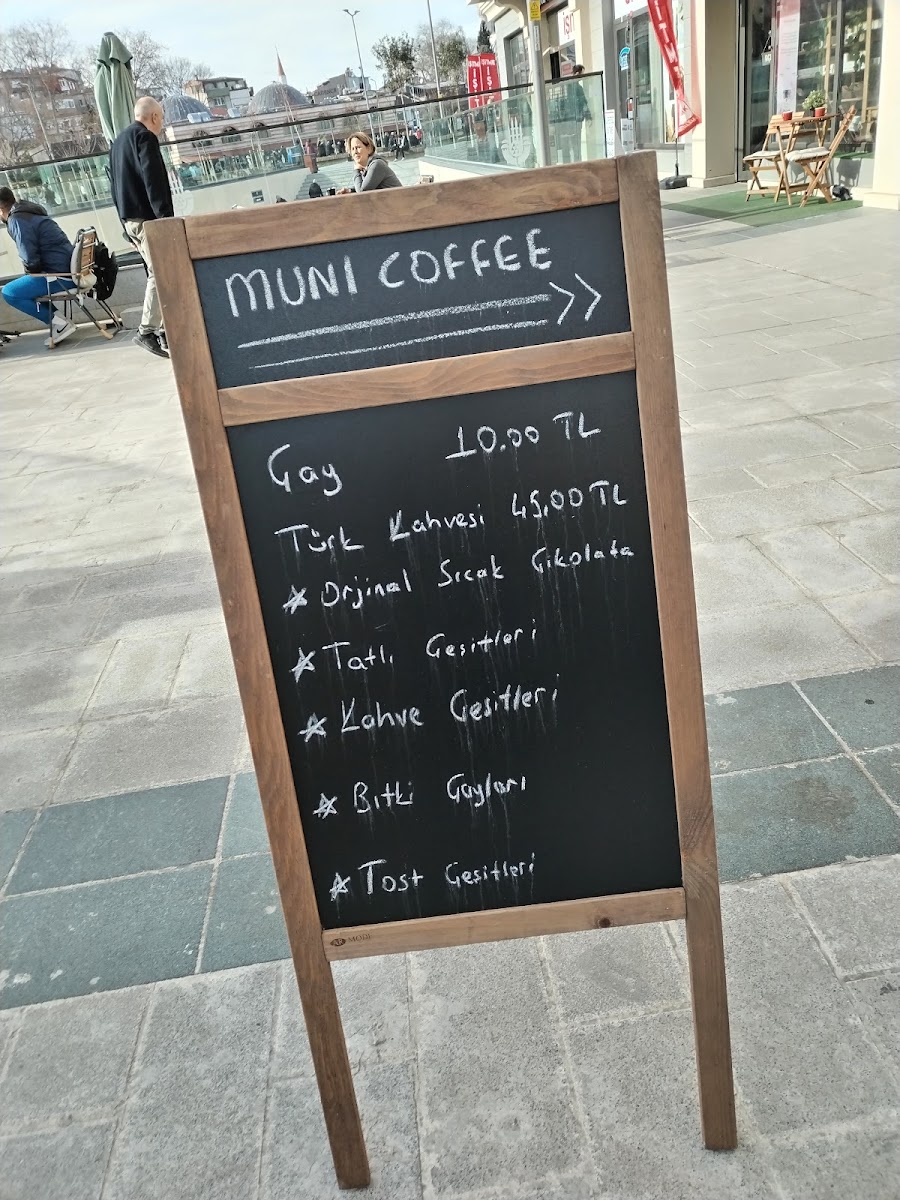 MUNI COFFEE
Çay 10.00 TL
Türk Kahvesi 45,00 TL
* Orjinal Sıcak Çikolata
* Tatlı Çeşitleri
* Kahve Çeşitleri
* Bitki Çayları
* Tost Çeşitleri